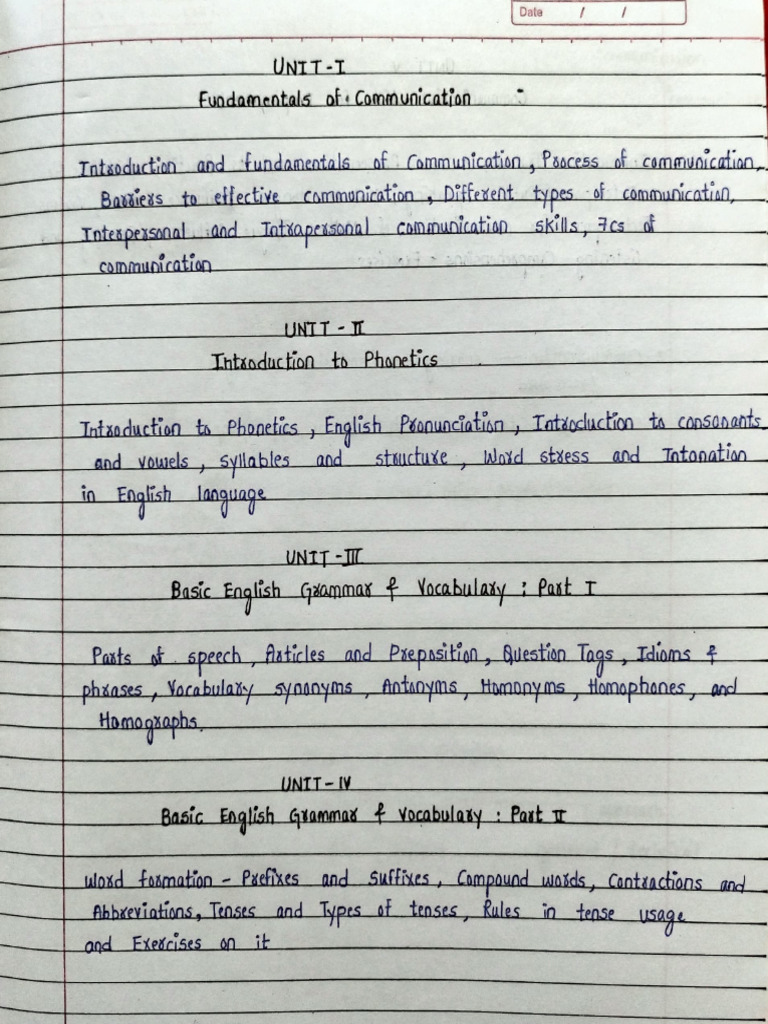 Date / /
UNIT-I
Fundamentals of Communication :
Introduction and fundamentals of Communication, Process of communication,
Barriers to effective communication, Different types of communication,
Interpersonal and Intrapersonal communication skills, 7cs of
communication
UNIT - II
Introduction to Phonetics
Introduction to Phonetics, English Pronunciation, Introduction to consonants
and vowels, syllables and structure, Word stress and Intonation
in English language
UNIT-III
Basic English Grammar & Vocabulary : Part I
Parts of speech, Articles and Preposition, Question Tags, Idioms &
phrases, Vocabulary synonyms, Antonyms, Homonyms, Homophones, and
Homographs.
UNIT-IV
Basic English Grammar & Vocabulary : Part II
Word formation - Prefixes and Suffixes, Compound words, Contractions and
Abbreviations, Tenses and Types of tenses, Rules in tense usage
and Exercises on it